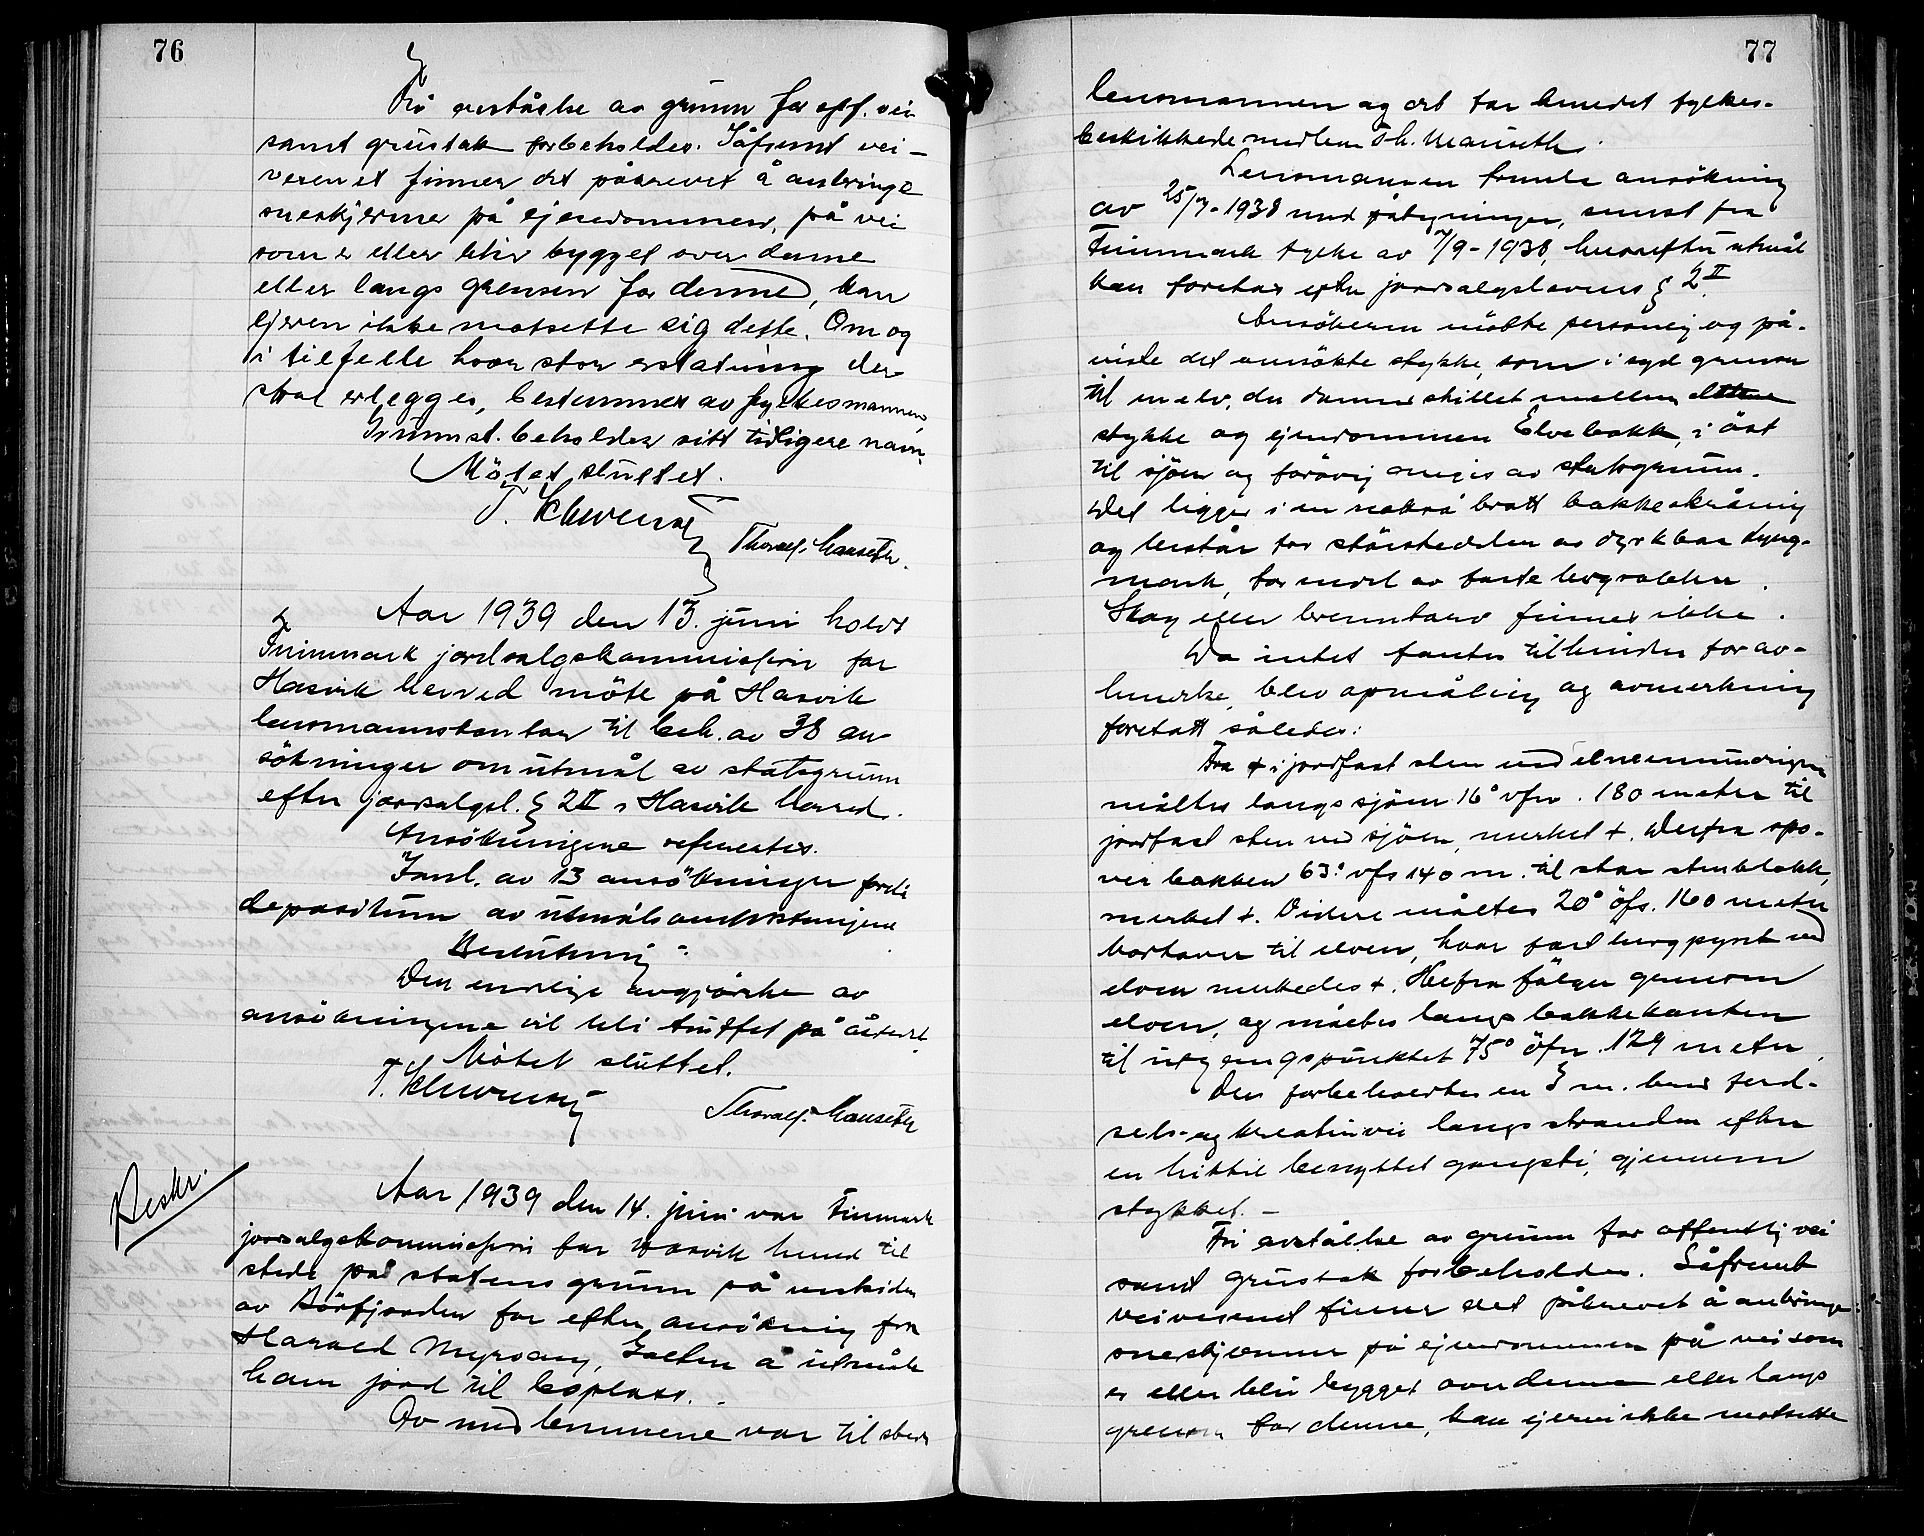 76
Fri avståelse av grunn for off. vei
samt grustak forbeholdes. Såfremt vei-
vesenet finner det påkrevet å anbringe
sneskjermer på ejendommen, på vei
som er eller blir bygget over denne
eller langs grensen for denne, kan
ejeren ikke motsette sig dette. Om og
i tilfelle hvor stor erstatning der
skal erlegges, bestemmes av fylkesmannen
Grunnst. beholder sitt tidligere navn.
Mötet sluttet.
Thoralf Mauseth.
Aar 1939 den 13. juni holdt
Finnmark jordsalgskommissjon for
Hasvik herred möte på Hasvik
lensmannskontor til beh. av 38 an
sökninger om utmål av statsgrunn
efter jordsalgsl. § 2 II i Hasvik herred.
Ansökningene refereertes.
av 13 ansökninger fordi
depositum av utmålsomkostningene
Beslutning:
Den endelige avgjörelse av
ansökningene vil bli truffet på åstedet.
Mötet sluttet.
Thoralf Mauseth
Beskr.
Aar 1939 den 14. juni var Finmark
jordsalgskommissjon for Hasvik herred til
stede på statens grunn på
av Börfjorden for efter ansökning fra
Harald Myrvang, å utmåle
ham jord til boplass.
Av medlemmene var til stede
77
lensmannen og det for herredet fylkes-
beskikkede medlem Th. Mauseth.
Lensmannen fremla ansökning
av 25/7-1938 med påtegninger, senest fra
Finnmark fylke av 7/9-1938, hvorefter utmål
kan foretas efter jordsalgslovens § 2 II.
Ansökeren mötte personlig og på-
viste det ansökte stykke, som i syd grenser
til en elv, der danner skillet mellem dette
stykke og ejendommen Elvebakk, i öst
til sjöen og forövrig omgis av statsgrunn.
Det ligger i en nokså bratt bakkeskråning
og består for störstedelen av dyrkbar lyng-
mark, for en del av faste bergrabber.
Skog eller brenntorv finnes ikke.
Da intet fantes til hinder for av-
hendelse, blev opmåling og avmerkning
foretatt således:
Fra + i jordfast sten ved elvemundingen
måltes langs sjöen 16° vfn. 180 meter til
jordfast sten ved sjöen, merket +. Derfra opo-
ver bakken 63° vfs 140 m. til stor stenblokk,
merket +. Videre måltes 20° öfs. 160 meter
bortover til elven, hvor fast bergpynt ved
elven merkedes +. Herfra fölger grensen
elven, og måltes langs bakkekanten
til utgangspunktet 75° öfn. 129 meter.
Der forbeholdtes en 3 m. bred ferd-
sels- og kreaturvei langs stranden efter
en hittil benyttet gangsti, gjennem
stykket. -
Fri avståelse av grunn for offentlig vei
samt grustak forbeholdes. Såfremt
veivesenet finner det påkrevet å anbringe
sneskjermer på ejendommen på vei som
er eller blir bygget over denne eller langs
grensen for denne, kan ejeren ikke motsette